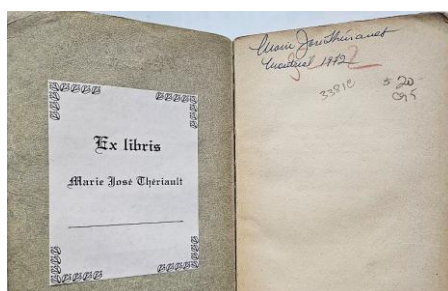 Ex libris
Marie José Thériault
Marie José Thériault
Montréal 1982
3381C
$20